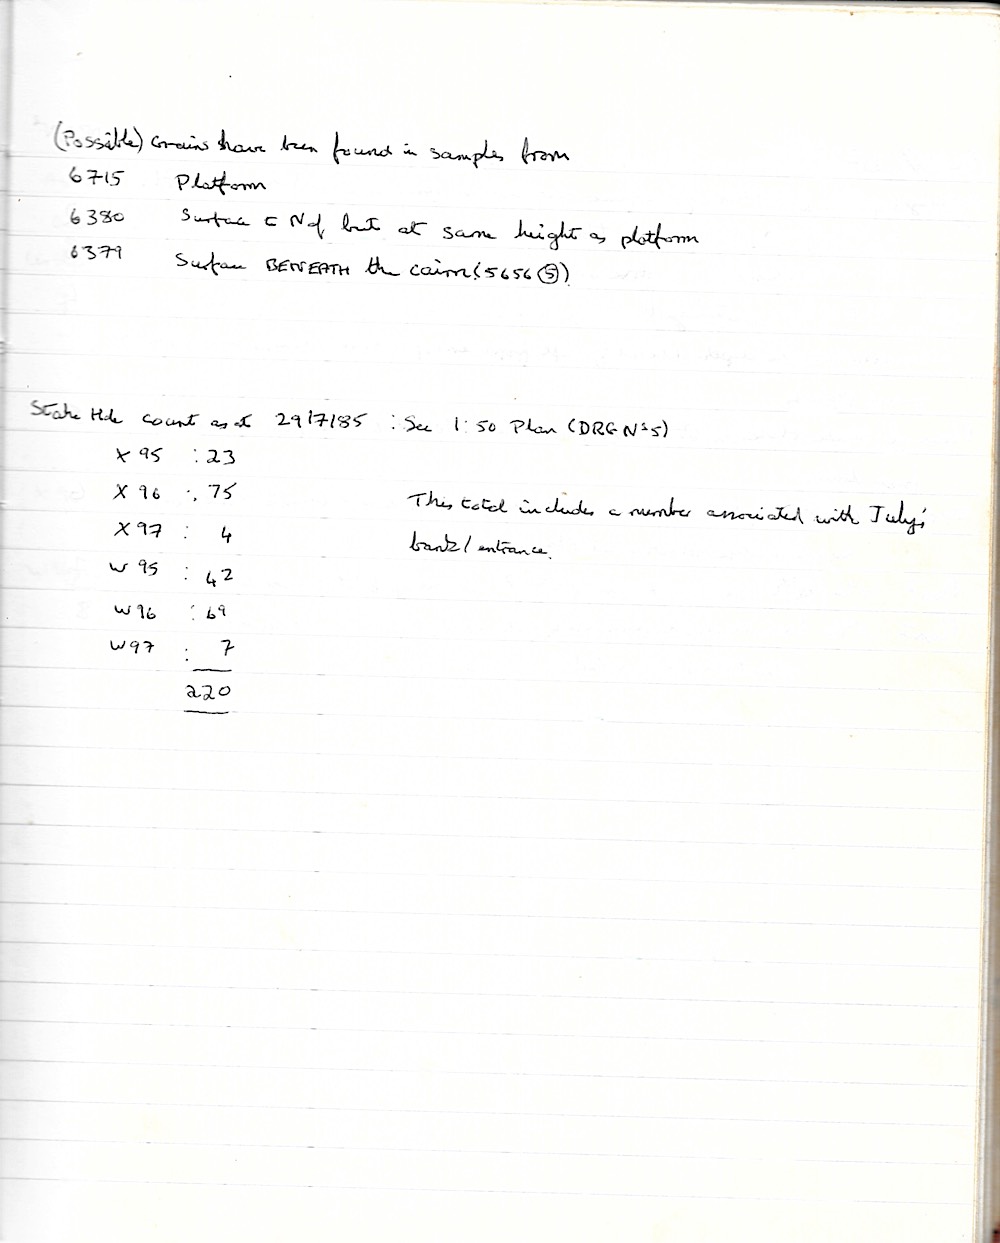 (Possible) Grains have been found in samples from
6715 Platform
6380 Surface C N of but at same height as platform
6379 Surface BENEATH the cairn (5656 (5))
Stake Hole count as at 29/7/85 : See 1:50 Plan (DRG Nos)
X 95 : 23
X 96 : 75
This total includes a number associated with July's
X 97 : 4
bank/entrance.
W 95 : 42
W 96 : 69
W 97 : 7
220